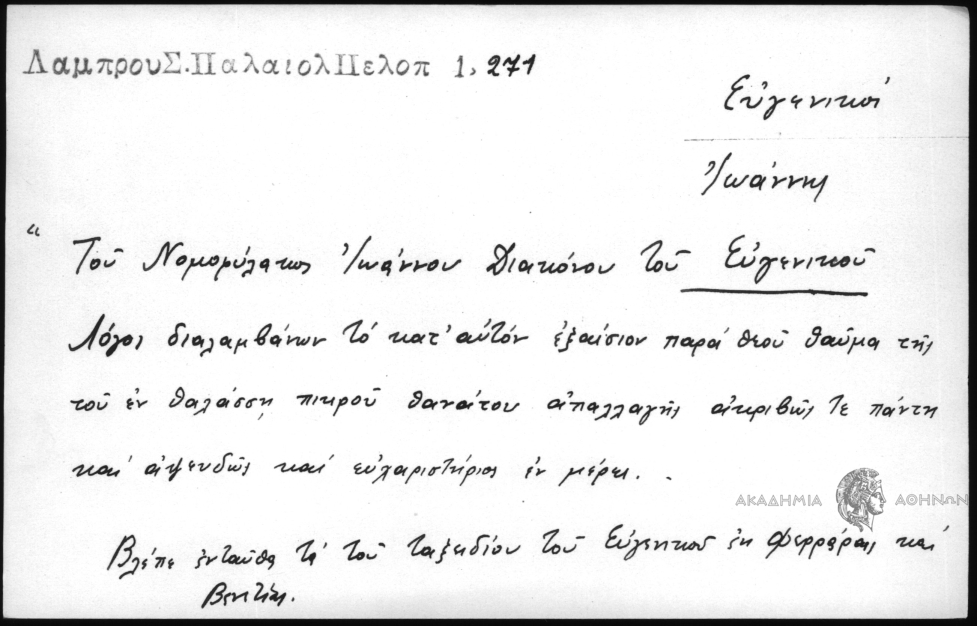 ΛαμπρουΣ.ΠαλαιολΠελοπ 1, 271
Εὐγενικοί
Ἰωάννης
“ Τοῦ Νομοφύλακος Ἰωάννου Διακόνου τοῦ Εὐγενικοῦ
Λόγος διαλαμβάνων τό κατ' αὐτόν ἐξαίσιον παρά θεοῦ θαῦμα τῆς
τοῦ ἐν θαλάσσῃ πικροῦ θανάτου ἀπαλλαγῆς ἀκριβῶς τε πάντη
καί ἀψευδῶς καί εὐχαριστήριος ἐν μέρει. .
ΑΚΑΔΗΜΙΑ ΑΘΗΝΩΝ
Βλέπε ἐνταῦθα τά τοῦ ταξειδίου τοῦ Εὐγενικοῦ ἐκ Φερράρας καί
Βενετίας.